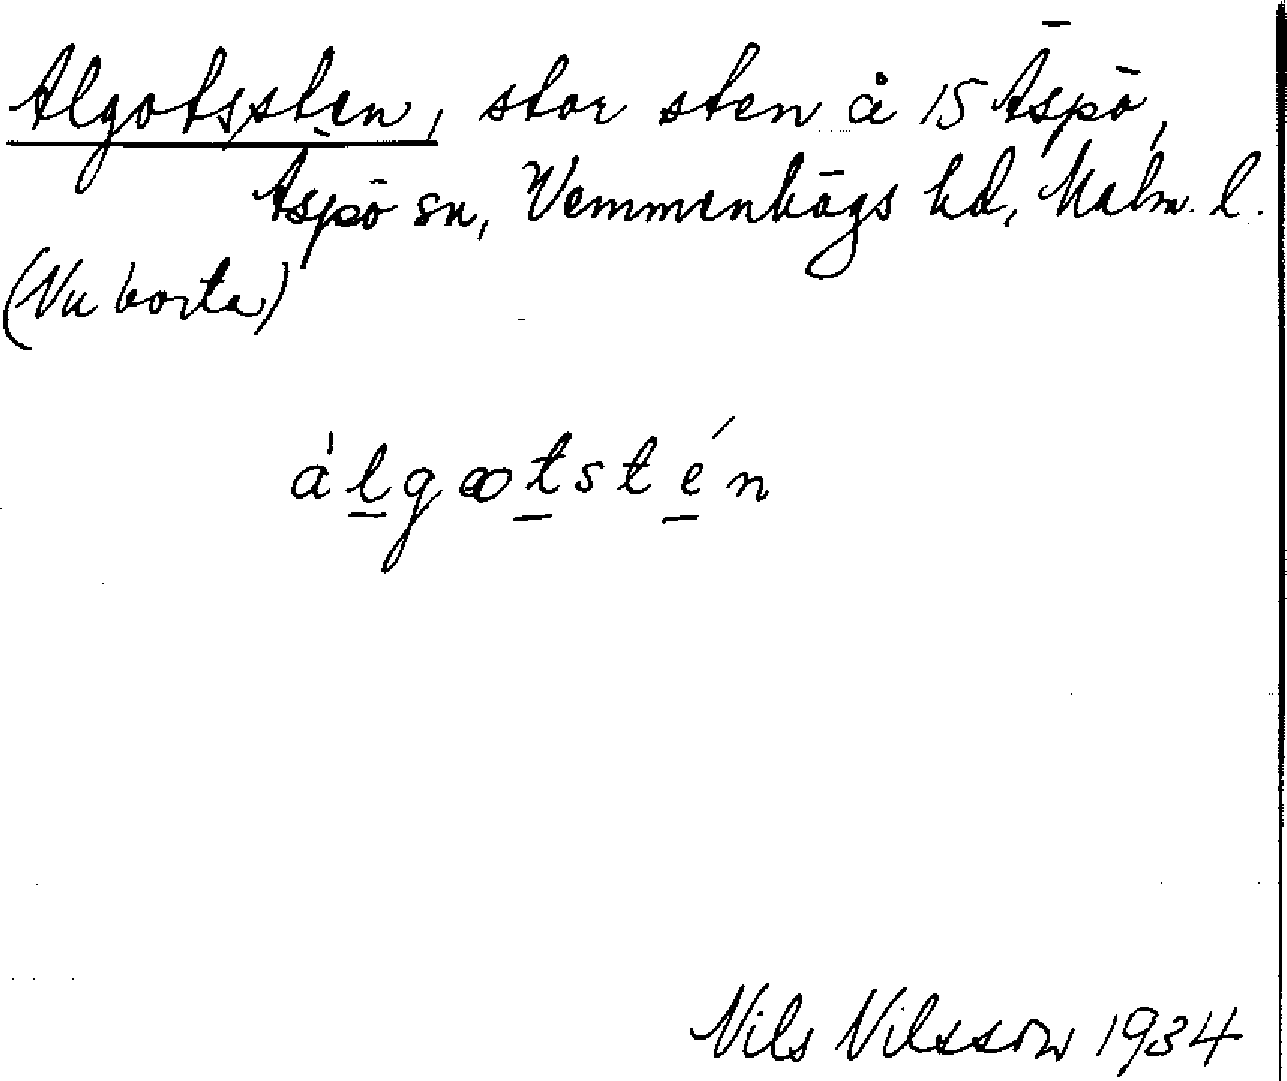 Algotssten, stor sten å 15 Äspö,
Äspö sn, Vemmenhögs hd, Malm. l.
(Nu borta)
álgꝏtstén
Nils Nilsson 1934